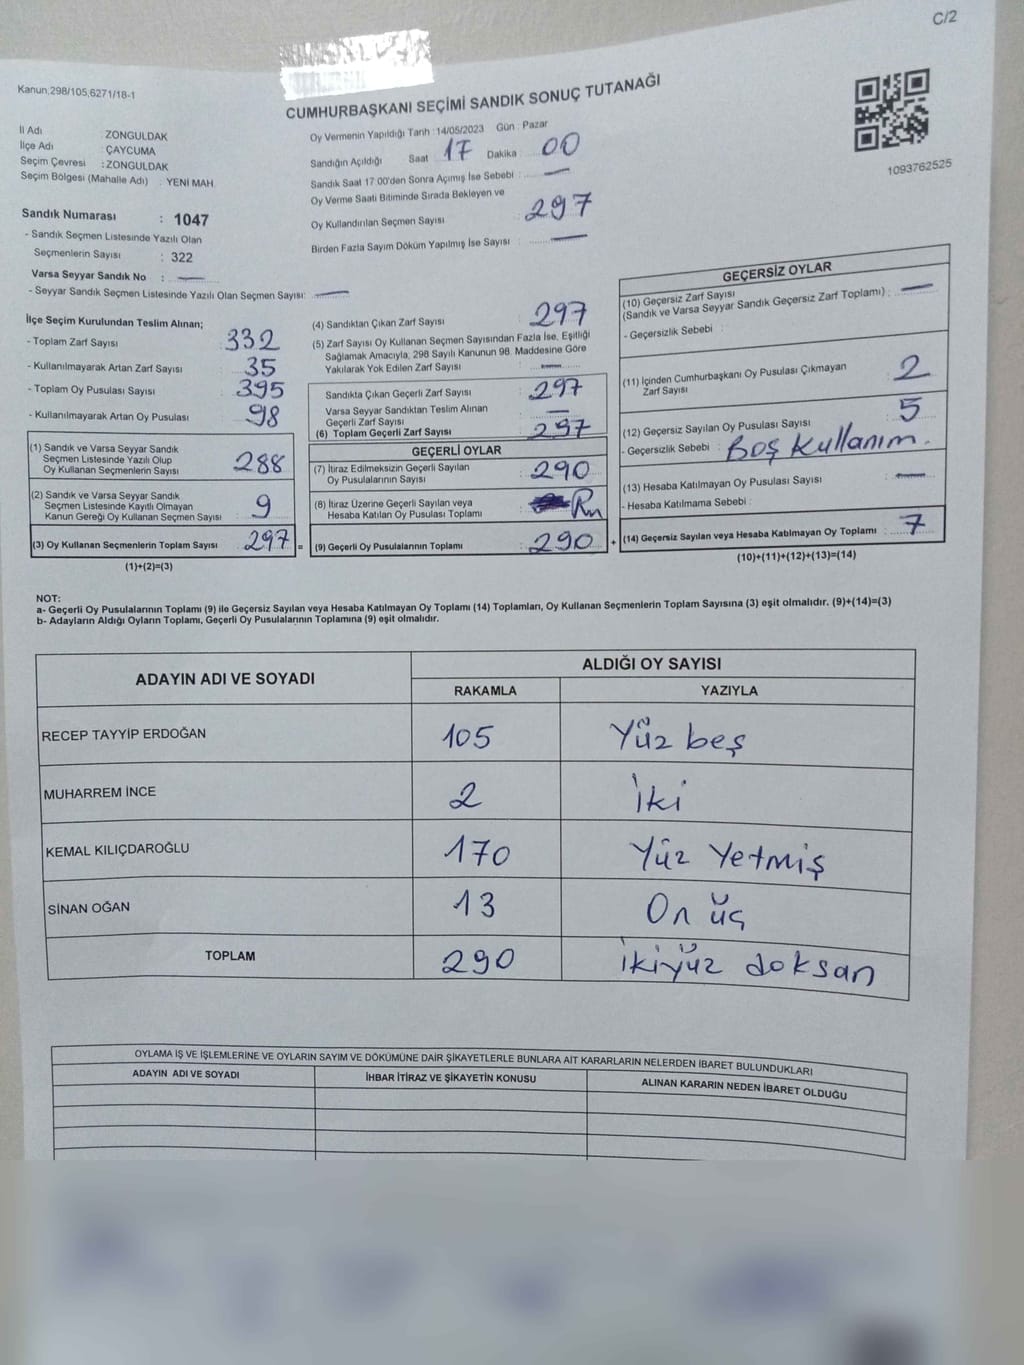 C/2
Kanun,298/105,6271/18-1
CUMHURBAŞKANI SEÇİMİ SANDIK SONUÇ TUTANAĞI
1093762525
İl Adı : ZONGULDAK
İlçe Adı : ÇAYCUMA
Seçim Çevresi : ZONGULDAK
Seçim Bölgesi (Mahalle Adı) : YENİ MAH
Oy Vermenin Yapıldığı Tarih : 14/05/2023 Gün : Pazar
Sandığın Açıldığı Saat : 17 Dakika : 00
Sandık Saat 17:00'den Sonra Açımış İse Sebebi : —
Oy Verme Saati Bitiminde Sırada Bekleyen ve
Oy Kullandırılan Seçmen Sayısı : 297
Birden Fazla Sayım Döküm Yapılmış İse Sayısı : —
Sandık Numarası : 1047
- Sandık Seçmen Listesinde Yazılı Olan
Seçmenlerin Sayısı : 322
Varsa Seyyar Sandık No : —
- Seyyar Sandık Seçmen Listesinde Yazılı Olan Seçmen Sayısı: —
İlçe Seçim Kurulundan Teslim Alınan;
- Toplam Zarf Sayısı : 332
- Kullanılmayarak Artan Zarf Sayısı : 35
- Toplam Oy Pusulası Sayısı : 395
- Kullanılmayarak Artan Oy Pusulası : 98
(1) Sandık ve Varsa Seyyar Sandık
Seçmen Listesinde Yazılı Olup
Oy Kullanan Seçmenlerin Sayısı : 288
(2) Sandık ve Varsa Seyyar Sandık
Seçmen Listesinde Kayıtlı Olmayan
Kanun Gereği Oy Kullanan Seçmen Sayısı : 9
(3) Oy Kullanan Seçmenlerin Toplam Sayısı : 297 =
(1)+(2)=(3)
(4) Sandıktan Çıkan Zarf Sayısı : 297
(5) Zarf Sayısı Oy Kullanan Seçmen Sayısından Fazla İse, Eşitliği
Sağlamak Amacıyla, 298 Sayılı Kanunun 98. Maddesine Göre
Yakılarak Yok Edilen Zarf Sayısı : —
Sandıkta Çıkan Geçerli Zarf Sayısı : 297
Varsa Seyyar Sandıktan Teslim Alınan
Geçerli Zarf Sayısı : —
(6) Toplam Geçerli Zarf Sayısı : 297
GEÇERLİ OYLAR
(7) İtiraz Edilmeksizin Geçerli Sayılan
Oy Pusulalarının Sayısı : 290
(8) İtiraz Üzerine Geçerli Sayılan veya
Hesaba Katılan Oy Pusulası Toplamı :
(9) Geçerli Oy Pusulalarının Toplamı : 290 +
GEÇERSİZ OYLAR
(10) Geçersiz Zarf Sayısı
(Sandık ve Varsa Seyyar Sandık Geçersiz Zarf Toplamı) : —
- Geçersizlik Sebebi :
(11) İçinden Cumhurbaşkanı Oy Pusulası Çıkmayan
Zarf Sayısı : 2
(12) Geçersiz Sayılan Oy Pusulası Sayısı : 5
- Geçersizlik Sebebi : Boş Kullanım.
(13) Hesaba Katılmayan Oy Pusulası Sayısı : —
- Hesaba Katılmama Sebebi :
(14) Geçersiz Sayılan veya Hesaba Katılmayan Oy Toplamı : 7
(10)+(11)+(12)+(13)=(14)
NOT:
a- Geçerli Oy Pusulalarının Toplamı (9) ile Geçersiz Sayılan veya Hesaba Katılmayan Oy Toplamı (14) Toplamları, Oy Kullanan Seçmenlerin Toplam Sayısına (3) eşit olmalıdır. (9)+(14)=(3)
b- Adayların Aldığı Oyların Toplamı, Geçerli Oy Pusulalarının Toplamına (9) eşit olmalıdır.
ADAYIN ADI VE SOYADI ALDIĞI OY SAYISI
RAKAMLA YAZIYLA
RECEP TAYYİP ERDOĞAN 105 Yüz beş
MUHARREM İNCE 2 İki
KEMAL KILIÇDAROĞLU 170 Yüz Yetmiş
SİNAN OĞAN 13 On üç
TOPLAM 290 İkiyüz doksan
OYLAMA İŞ VE İŞLEMLERİNE VE OYLARIN SAYIM VE DÖKÜMÜNE DAİR ŞİKAYETLERLE BUNLARA AİT KARARLARIN NELERDEN İBARET BULUNDUKLARI
ADAYIN ADI VE SOYADI İHBAR İTİRAZ VE ŞİKAYETİN KONUSU ALINAN KARARIN NEDEN İBARET OLDUĞU